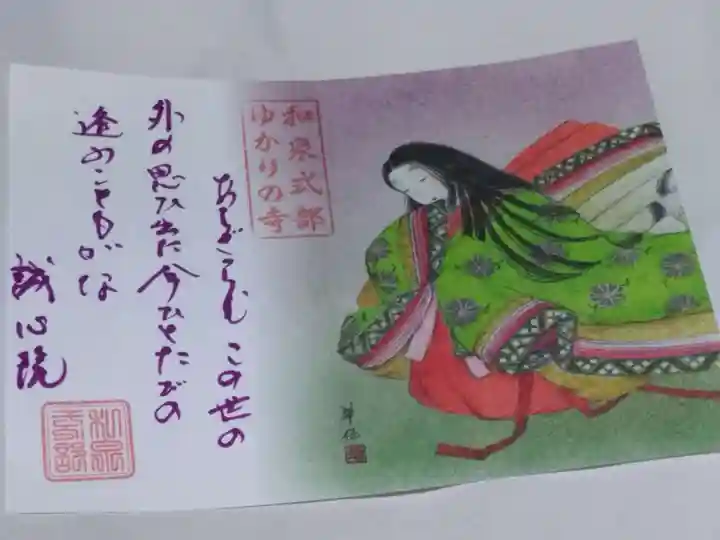 和泉式部
ゆかりの寺
あらざらむ この世の
外の思ひ出に今ひとたびの
逢ふこともがな
誠心院
和泉
式部